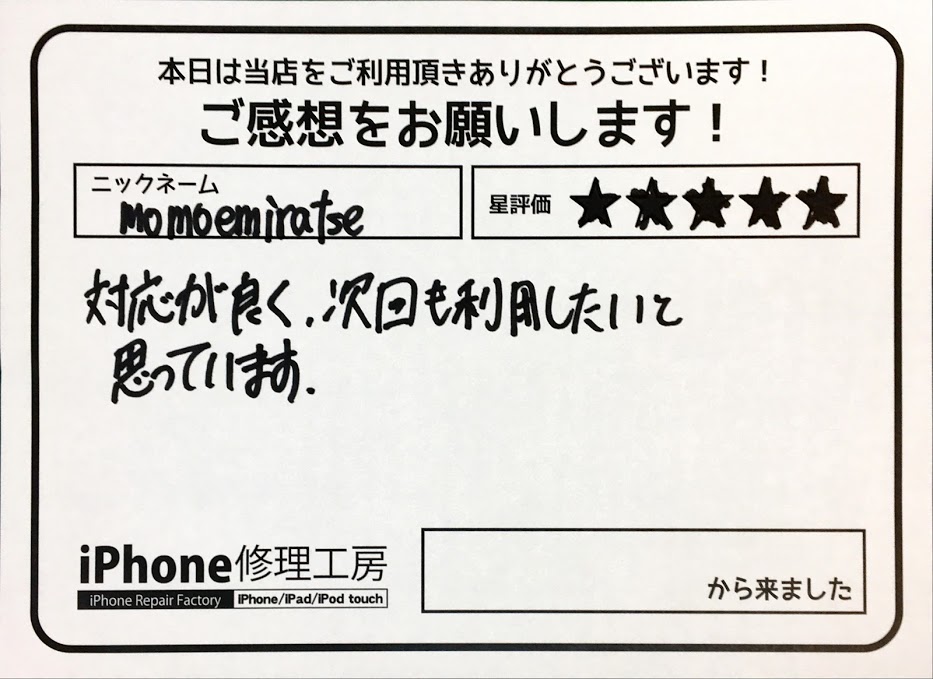 本日は当店をご利用頂きありがとうございます!
ご感想をお願いします!
ニックネーム
momoemiratse
星評価 ★★★★★
対応が良く、次回も利用したいと
思っています.
iPhone修理工房
iPhone Repair Factory iPhone/iPad/iPod touch
から来ました